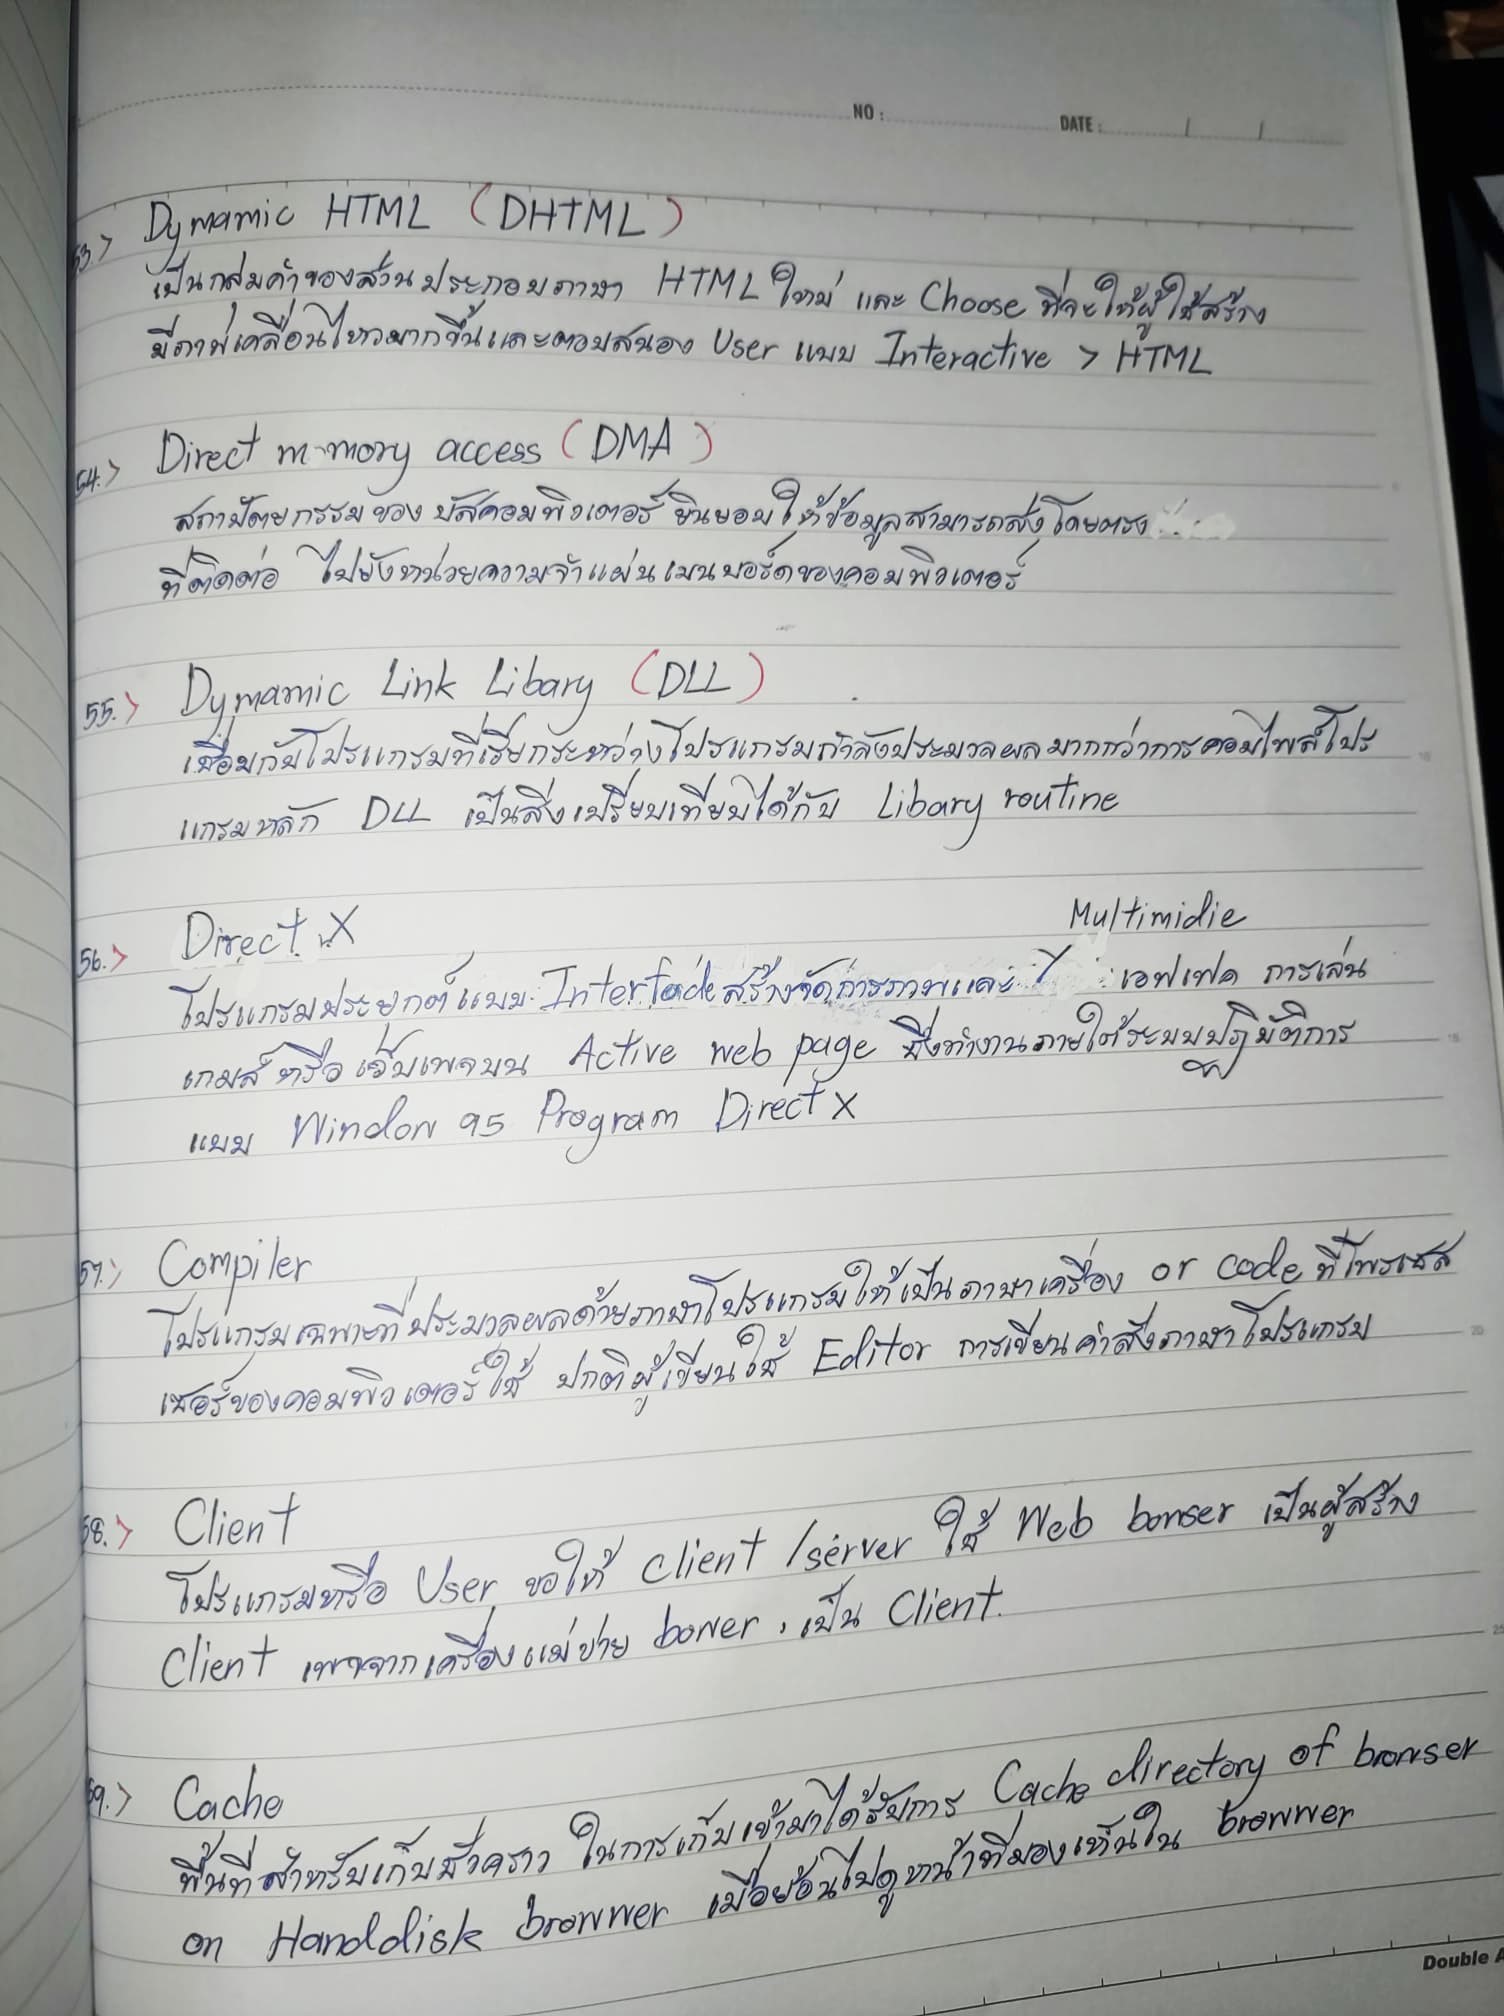 NO :
DATE : / /
53.> Dymamic HTML (DHTML)
เป็นกลุ่มคำของส่วนประกอบภาษา HTML ใหม่ และ Choose ที่จะให้ผู้ใช้สร้าง
มีภาพเคลื่อนไหวมากขึ้นและตอบสนอง User แบบ Interactive > HTML
54.> Direct m mory access (DMA)
สถาปัตยกรรมของ บัสคอมพิวเตอร์ ยินยอมให้ข้อมูลสามารถส่งโดยตรง
ที่ติดต่อ ไปยังหน่วยความจำแผ่นเมนบอร์ดของคอมพิวเตอร์
55.> Dymamic Link Libary (DLL)
เชื่อมกับโปรแกรมที่เรียกระหว่างโปรแกรมกำลังประมวลผลมากกว่าการคอมไพล์โปร
แกรมหลัก DLL เป็นสิ่งเปรียบเทียบได้กับ Libary routine
56.> Direct X
Multimidie
โปรแกรมประยุกต์แบบ Interfade สร้างจัดการภาพและ เอฟเฟค การเล่น
เกมส์ หรือ เว็บเพจบน Active web page ซึ่งทำงานภายใต้ระบบปฏิบัติการ
แบบ Window 95 Program Direct X
57.> Compiler
โปรแกรมเฉพาะที่ประมวลผลด้วยภาษาโปรแกรมให้เป็นภาษาเครื่อง or code ที่โพรเซส
เซอร์ของคอมพิวเตอร์ใช้ ปกติผู้เขียนใช้ Editor การเขียนคำสั่งภาษาโปรแกรม
58.> Client
โปรแกรมหรือ User ขอให้ client /server ใช้ Web bonser เป็นผู้สร้าง
Client เพจจากเครื่องแม่ข่าย bower เป็น Client.
59.> Cache
พื้นที่สำหรับเก็บชั่วคราว ในการเก็บเข้ามาได้รับการ Cache directory of bronser
on Handdisk bronner เมื่อย้อนไปดูหน้าที่มองเห็นใน bronner
Double A